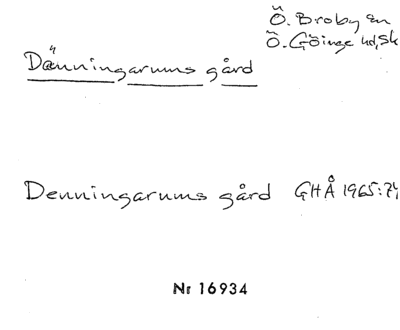 Ö. Broby sn
Ö. Göinge hd, Sk
Dänningarums gård
Denningarums gård GHÅ 1965:74
Nr 16934